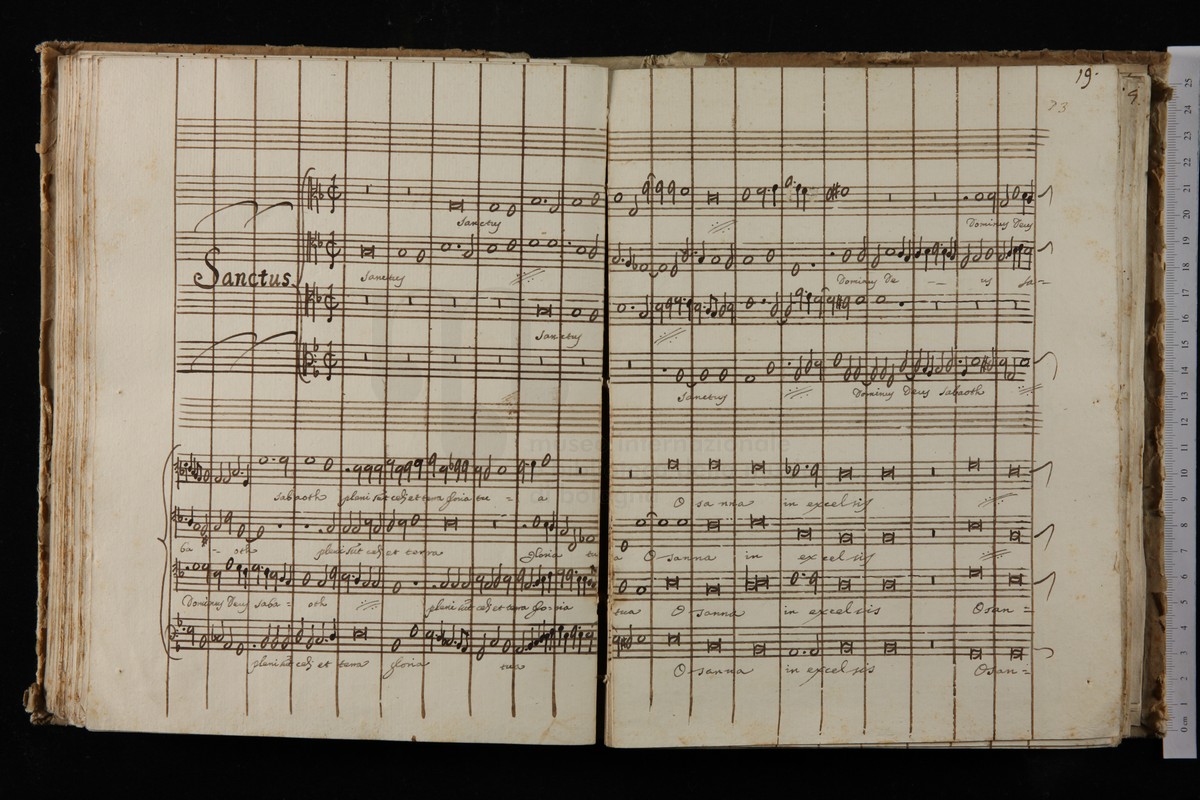 19.
23
9
Sanctus
Sanctus
Dominus Deus
Sanctus
Dominus De — — us sa=
Sanctus
Sanctus
Dominus Deus sabaoth
museo internazionale
bologna
sabaoth pleni sūt celi et terra gloria tu = a
O sanna in excelsis
ba = oth pleni sūt celi et terra gloria tu
a O sanna in excelsis
Dominus Deus saba = oth
pleni sūt celi et terra gloria
tua O sanna in excelsis Osan =
pleni sūt celi et terra gloria tua
O sanna in excelsis Osan =
25
24
23
22
21
20
19
18
17
16
15
14
13
12
11
10
9
8
7
6
5
4
3
2
1
0 cm